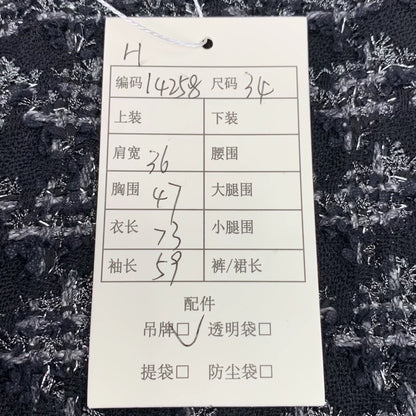 H
编码 14258 尺码 34
上装 下装
肩宽 36 腰围
胸围 47 大腿围
衣长 73 小腿围
袖长 59 裤/裙长
配件
吊牌☑ 透明袋□
提袋□ 防尘袋□